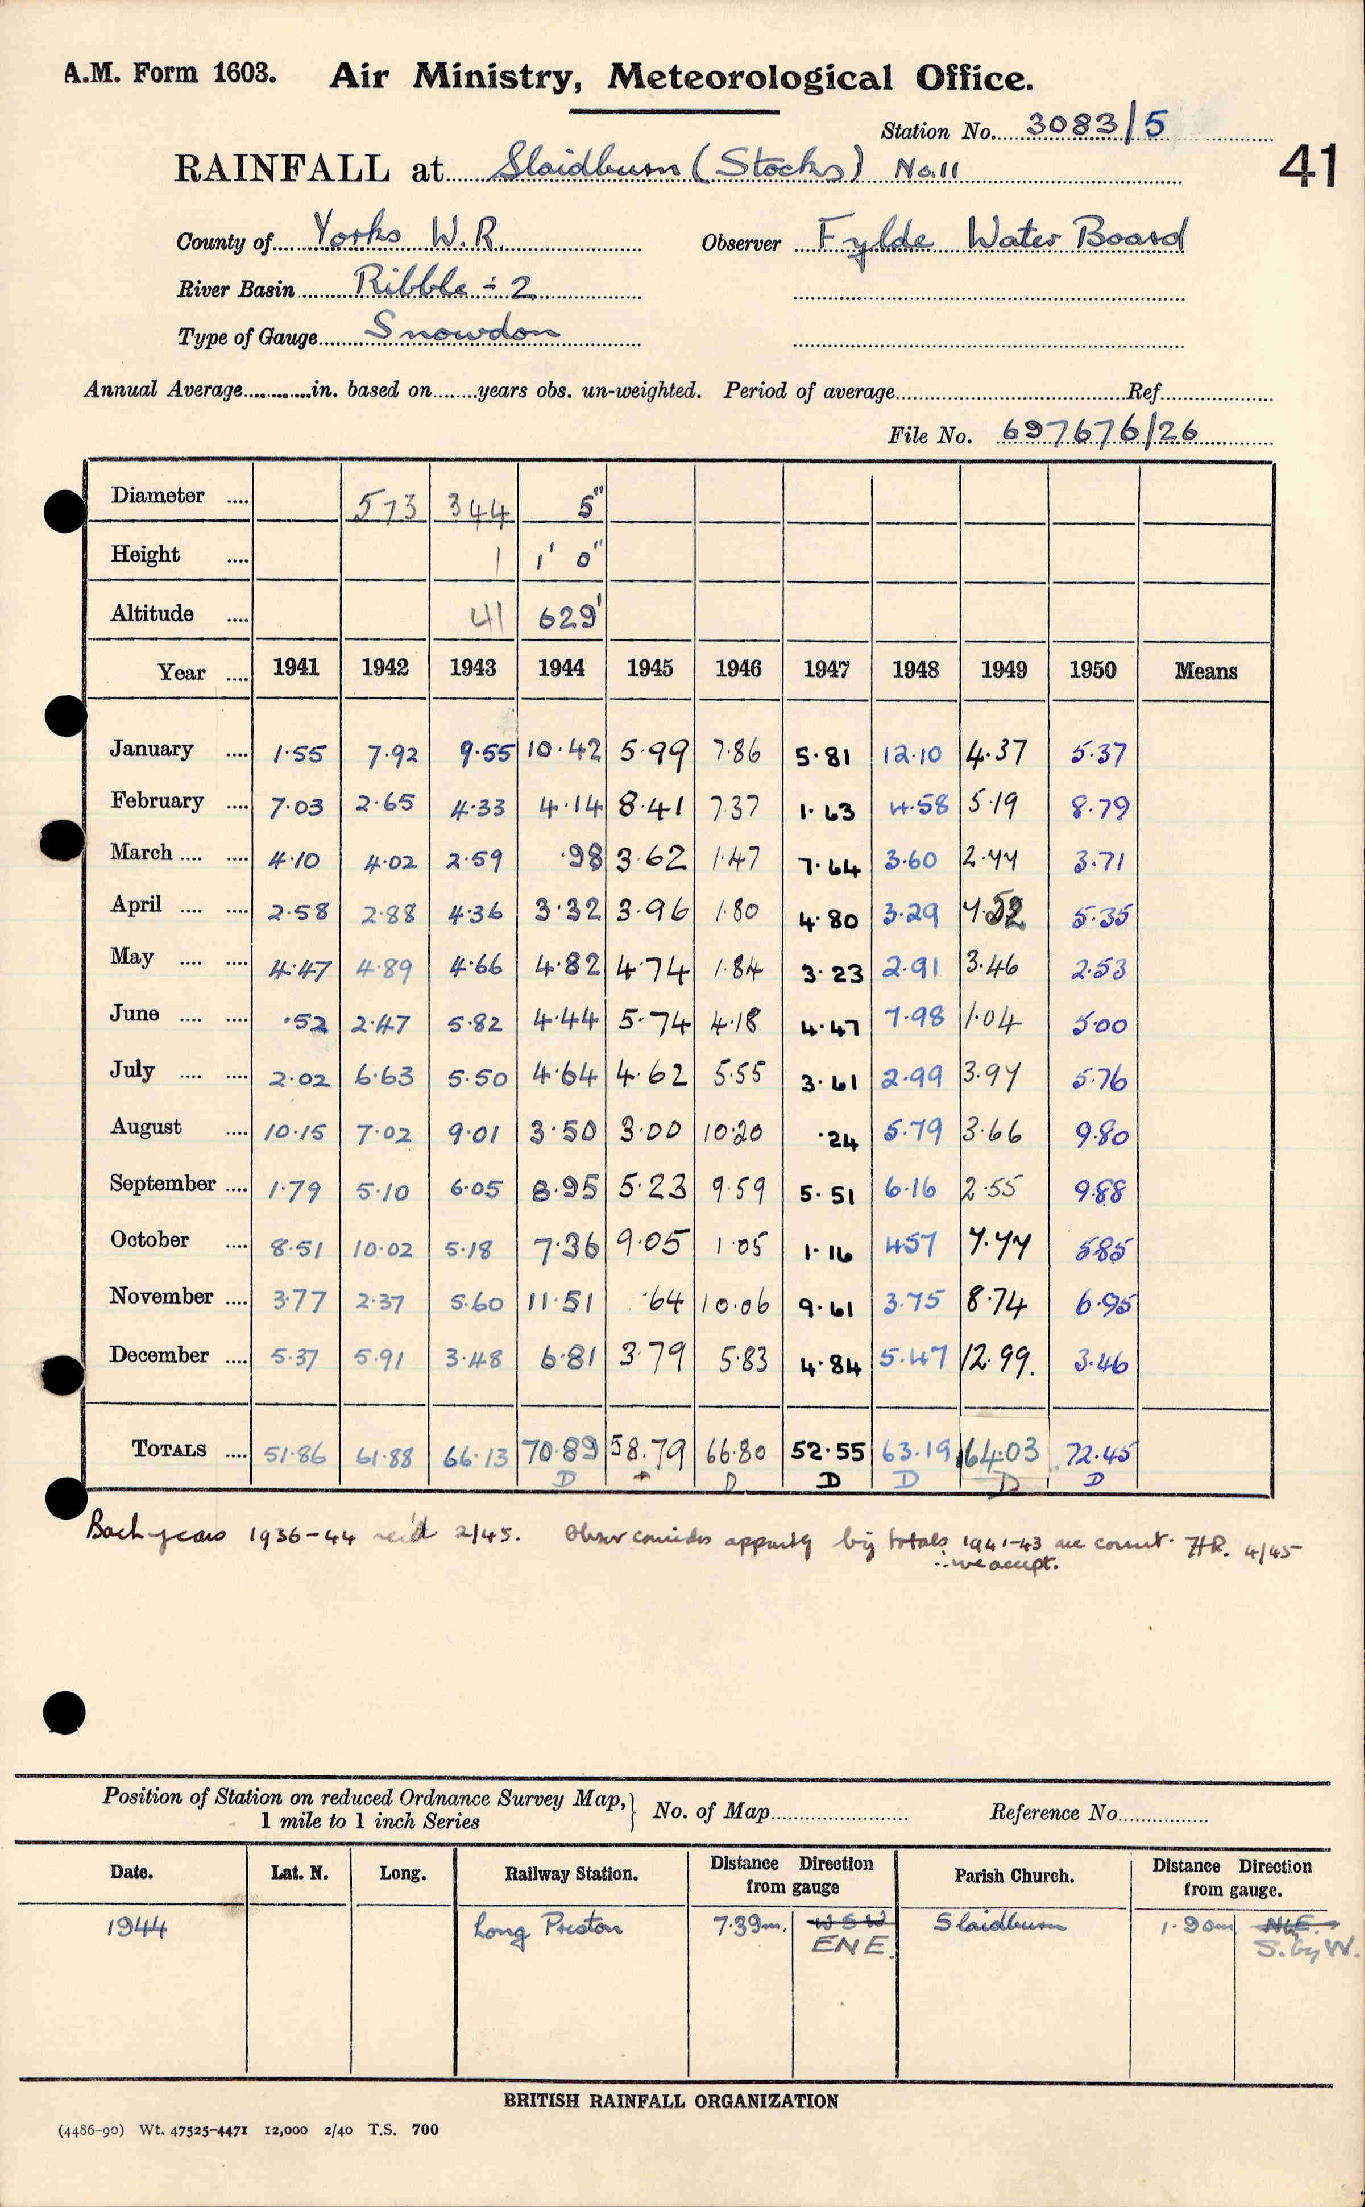 A.M. Form 1603. Air Ministry, Meteorological Office.
Station No. 3083/5
41
RAINFALL at Slaidburn (Stocks) No.11
County of Yorks W.R. Observer Fylde Water Board
River Basin Ribble - 2
Type of Gauge Snowdon
Annual Average............in. based on........years obs. un-weighted. Period of average Ref
File No. 697676/26
Diameter .... 573 344 5"
Height .... 1 1' 0"
Altitude .... 41 629'
Year .... 1941 1942 1943 1944 1945 1946 1947 1948 1949 1950 Means
January .... 1.55 7.92 9.55 10.42 5.99 7.86 5.81 12.10 4.37 5.37
February .... 7.03 2.65 4.33 4.14 8.41 7.37 1.63 4.58 5.19 8.79
March .... .... 4.10 4.02 2.59 .98 3.62 1.47 7.64 3.60 2.44 3.71
April .... .... 2.58 2.88 4.36 3.32 3.96 1.80 4.80 3.29 7.52 5.35
May .... .... 4.47 4.89 4.66 4.82 4.74 1.84 3.23 2.91 3.46 2.53
June .... .... .52 2.47 5.82 4.44 5.74 4.18 4.47 7.98 1.04 5.00
July .... .... 2.02 6.63 5.50 4.64 4.62 5.55 3.61 2.99 3.94 5.76
August .... 10.15 7.02 9.01 3.50 3.00 10.20 .24 5.79 3.66 9.80
September .... 1.79 5.10 6.05 8.95 5.23 9.59 5.51 6.16 2.55 9.88
October .... 8.51 10.02 5.18 7.36 9.05 1.05 1.16 4.57 7.44 5.85
November .... 3.77 2.37 5.60 11.51 .64 10.06 9.61 3.75 8.74 6.95
December .... 5.37 5.91 3.48 6.81 3.79 5.83 4.84 5.47 12.99. 3.46
TOTALS .... 51.86 61.88 66.13 70.89 58.79 66.80 52.55 63.19 64.03 72.45
D D D D D D
Back years 1936-44 rec'd 2/45. Obser considers big totals 1941-43 are correct. HR. 4/45
∴ we accept.
Position of Station on reduced Ordnance Survey Map, No. of Map Reference No.
1 mile to 1 inch Series
Date. Lat. N. Long. Railway Station. Distance Direction from gauge Parish Church. Distance Direction from gauge.
1944 Long Preston 7.39m. WSW Slaidburn 1.90m N.E.
ENE. S. by W.
BRITISH RAINFALL ORGANIZATION
(4486-90) Wt. 47525-4471 12,000 2/40 T.S. 700